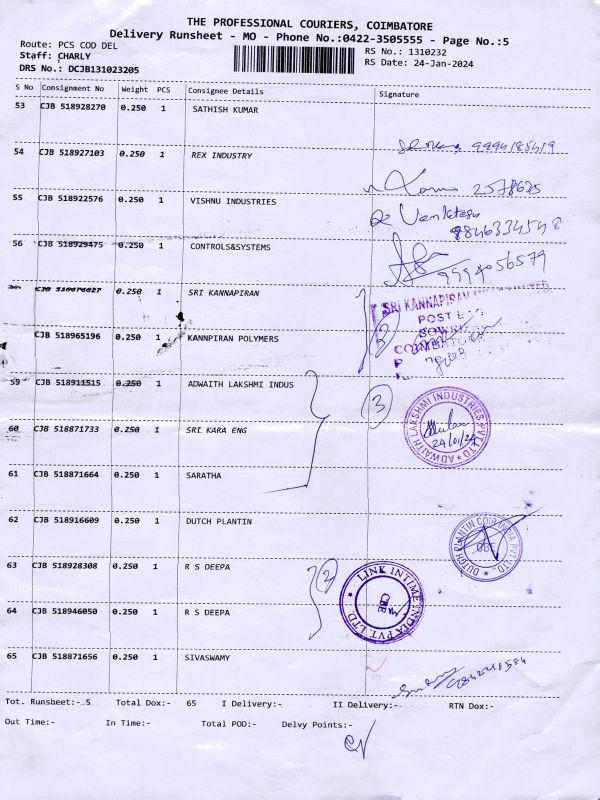 THE PROFESSIONAL COURIERS, COIMBATORE
Delivery Runsheet - MO - Phone No.:0422-3505555 - Page No.:5
Route: PCS COD DEL
Staff: CHARLY
DRS No.: DCJB131023205
RS No.: 1310232
RS Date: 24-Jan-2024
S No Consignment No Weight PCS Consignee Details Signature
53 CJB 518928270 0.250 1 SATHISH KUMAR
9994188419
54 CJB 518927103 0.250 1 REX INDUSTRY
2578625
55 CJB 518922576 0.250 1 VISHNU INDUSTRIES
Venkatesh
9846334548
56 CJB 518929475 0.250 1 CONTROLS&SYSTEMS
9994056579
CJB 0.250 1 SRI KANNAPIRAN
SRI KANNAPIRAN
POST
CJB 518965196 0.250 1 KANNPIRAN POLYMERS
2
59 CJB 518911515 0.250 1 ADWAITH LAKSHMI INDUS
3
ADWAITH LAKSHMI INDUSTRIES PVT LTD
24/01/24
60 CJB 518871733 0.250 1 SRI KARA ENG
61 CJB 518871664 0.250 1 SARATHA
62 CJB 518916609 0.250 1 DUTCH PLANTIN
DUTCH PLANTIN COIR INDIA PVT LTD.
CBE
63 CJB 518928308 0.250 1 R S DEEPA
2
LINK INTIME INDIA PVT. LTD.
CBE
64 CJB 518946050 0.250 1 R S DEEPA
65 CJB 518871656 0.250 1 SIVASWAMY
9842218584
Tot. Runsheet:- 5 Total Dox:- 65 I Delivery:- II Delivery:- RTN Dox:-
Out Time:- In Time:- Total POD:- Delvy Points:-